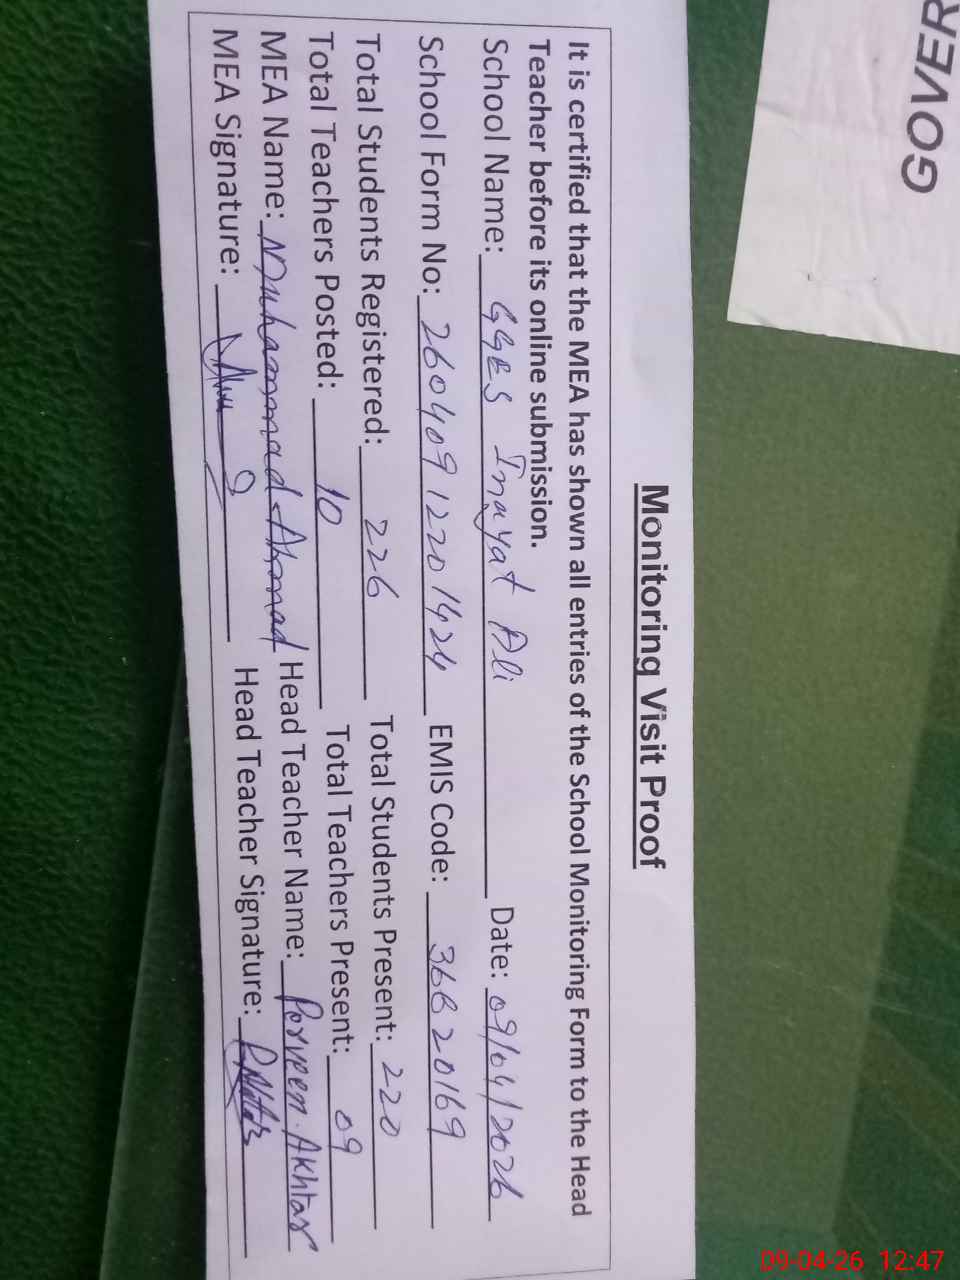 GOVER
Monitoring Visit Proof
It is certified that the MEA has shown all entries of the School Monitoring Form to the Head
Teacher before its online submission.
School Name: GGES Inayat Ali Date: 09/04/2026
School Form No: 26040912201424 EMIS Code: 36620169
Total Students Registered: 226 Total Students Present: 220
Total Teachers Posted: 10 Total Teachers Present: 09
MEA Name: Muhammad Ahmad Head Teacher Name: Perveen Akhtar
MEA Signature: Head Teacher Signature:
09-04-26 12:47